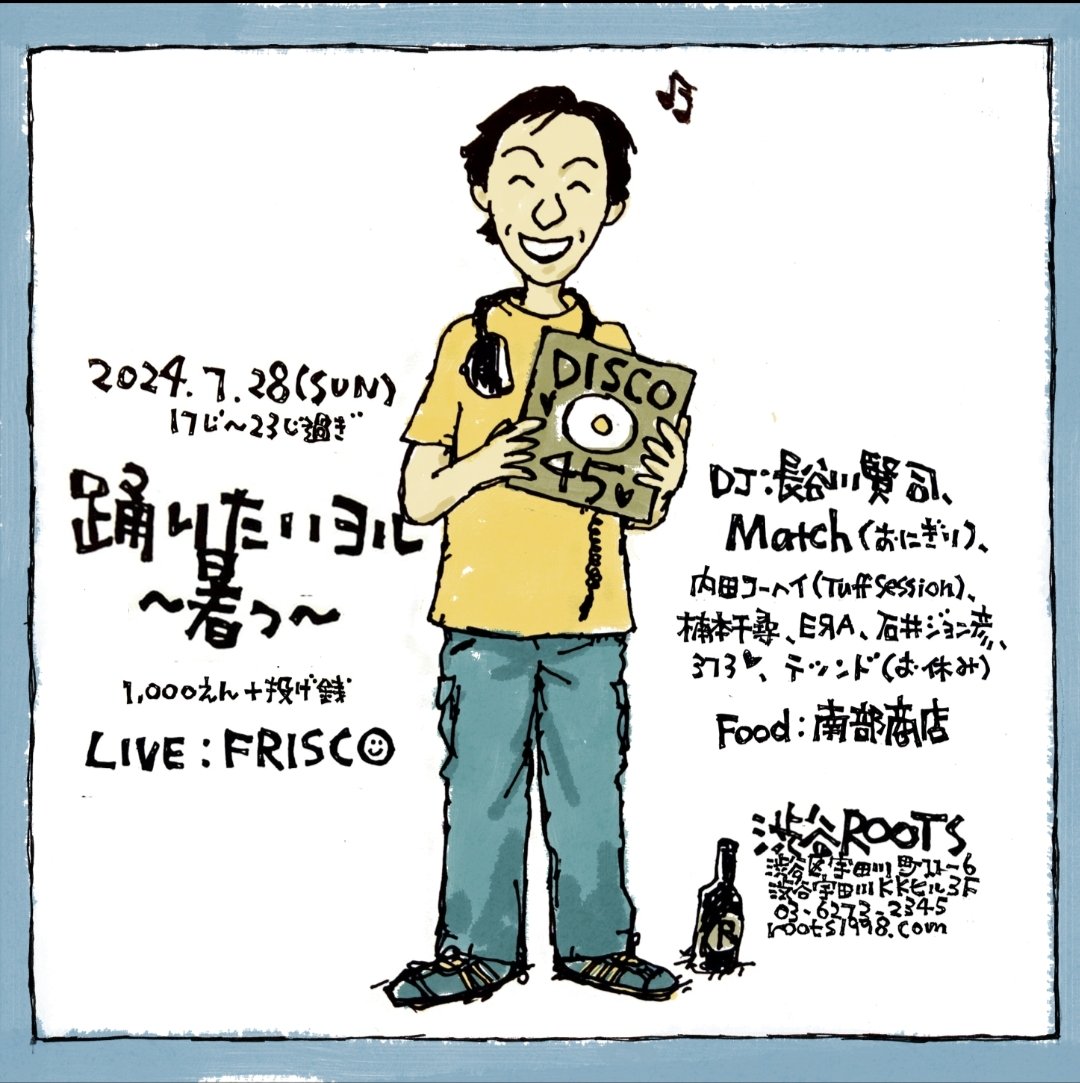 2024.7.28(SUN)
17じ〜23じ過ぎ
踊りたいヨル
〜暑っ〜
1,000えん+投げ銭
LIVE:FRISCO
DISCO
45
DJ:長谷川賢司、
Match(おにぎり)、
内田コーヘイ(Tuff Session)、
楠本千尋、ERA、石井ジョン彦、
373♥、テツンド(お休み)
Food:南部商店
渋谷ROOTS
渋谷区宇田川町11-6
渋谷宇田川KKビル3F
03-6273-2345
roots1998.com
R